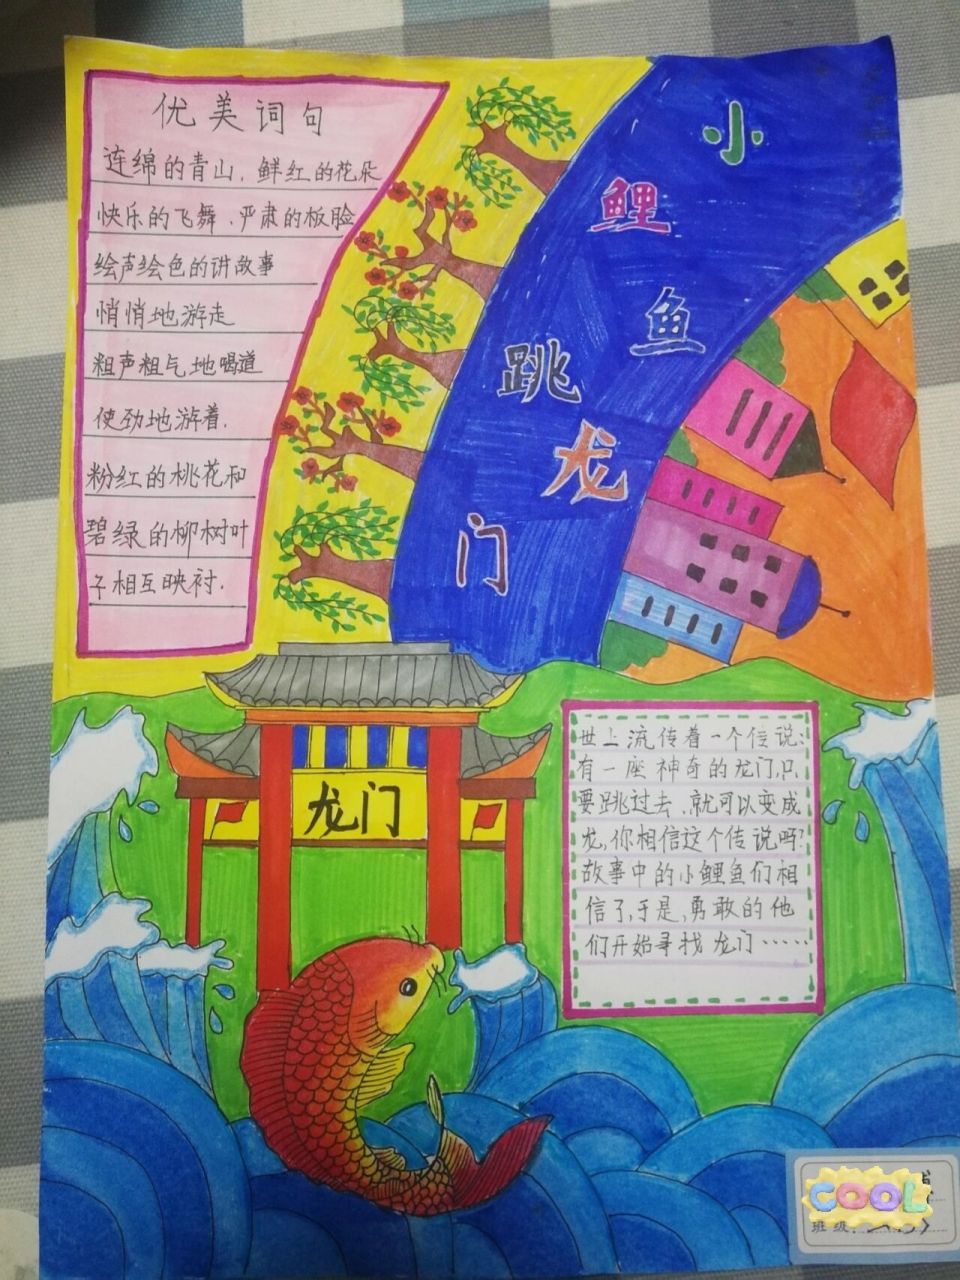 优美词句
连绵的青山、鲜红的花朵
快乐的飞舞、严肃的板脸
绘声绘色的讲故事
悄悄地游走
粗声粗气地喝道
使劲地游着.
粉红的桃花和
碧绿的柳树叶
子相互映衬.
小鲤鱼跳龙门
龙门
世上流传着一个传说:
有一座神奇的龙门,只
要跳过去、就可以变成
龙,你相信这个传说吗?
故事中的小鲤鱼们相
信了,于是,勇敢的他
们开始寻找龙门……
COOL
班级: